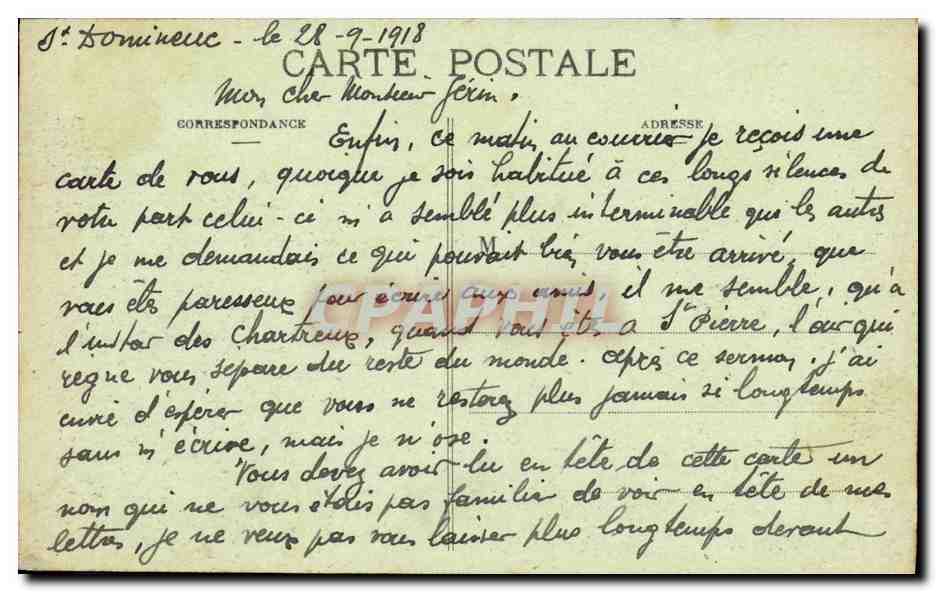 St Domineuc - le 28-9-1918
CARTE POSTALE
Mon cher Monsieur Jérin.
CORRESPONDANCE
ADRESSE
Enfin, ce matin au courrier je reçois une
carte de vous, quoique je sois habitué à ces longs silences de
votre part celui-ci m'a semblé plus interminable que les autres
et je me demandais ce qui pouvait bien vous être arrivé, que
M
vous êtes paresseux pour écrire aux amis, il me semble, qu'à
CPAPHIL
l'instar des Chartreux, quand vous êtes à St Pierre, l'air qui
règne vous sépare du reste du monde. après ce sermon, j'ai
envie d'espérer que vous ne resterez plus jamais si longtemps
sans m'écrire, mais je n'ose.
Vous devez avoir lu en tête de cette carte un
nom qui ne vous étais pas familier de voir en tête de mes
lettres, je ne veux pas vous laisser plus longtemps devant